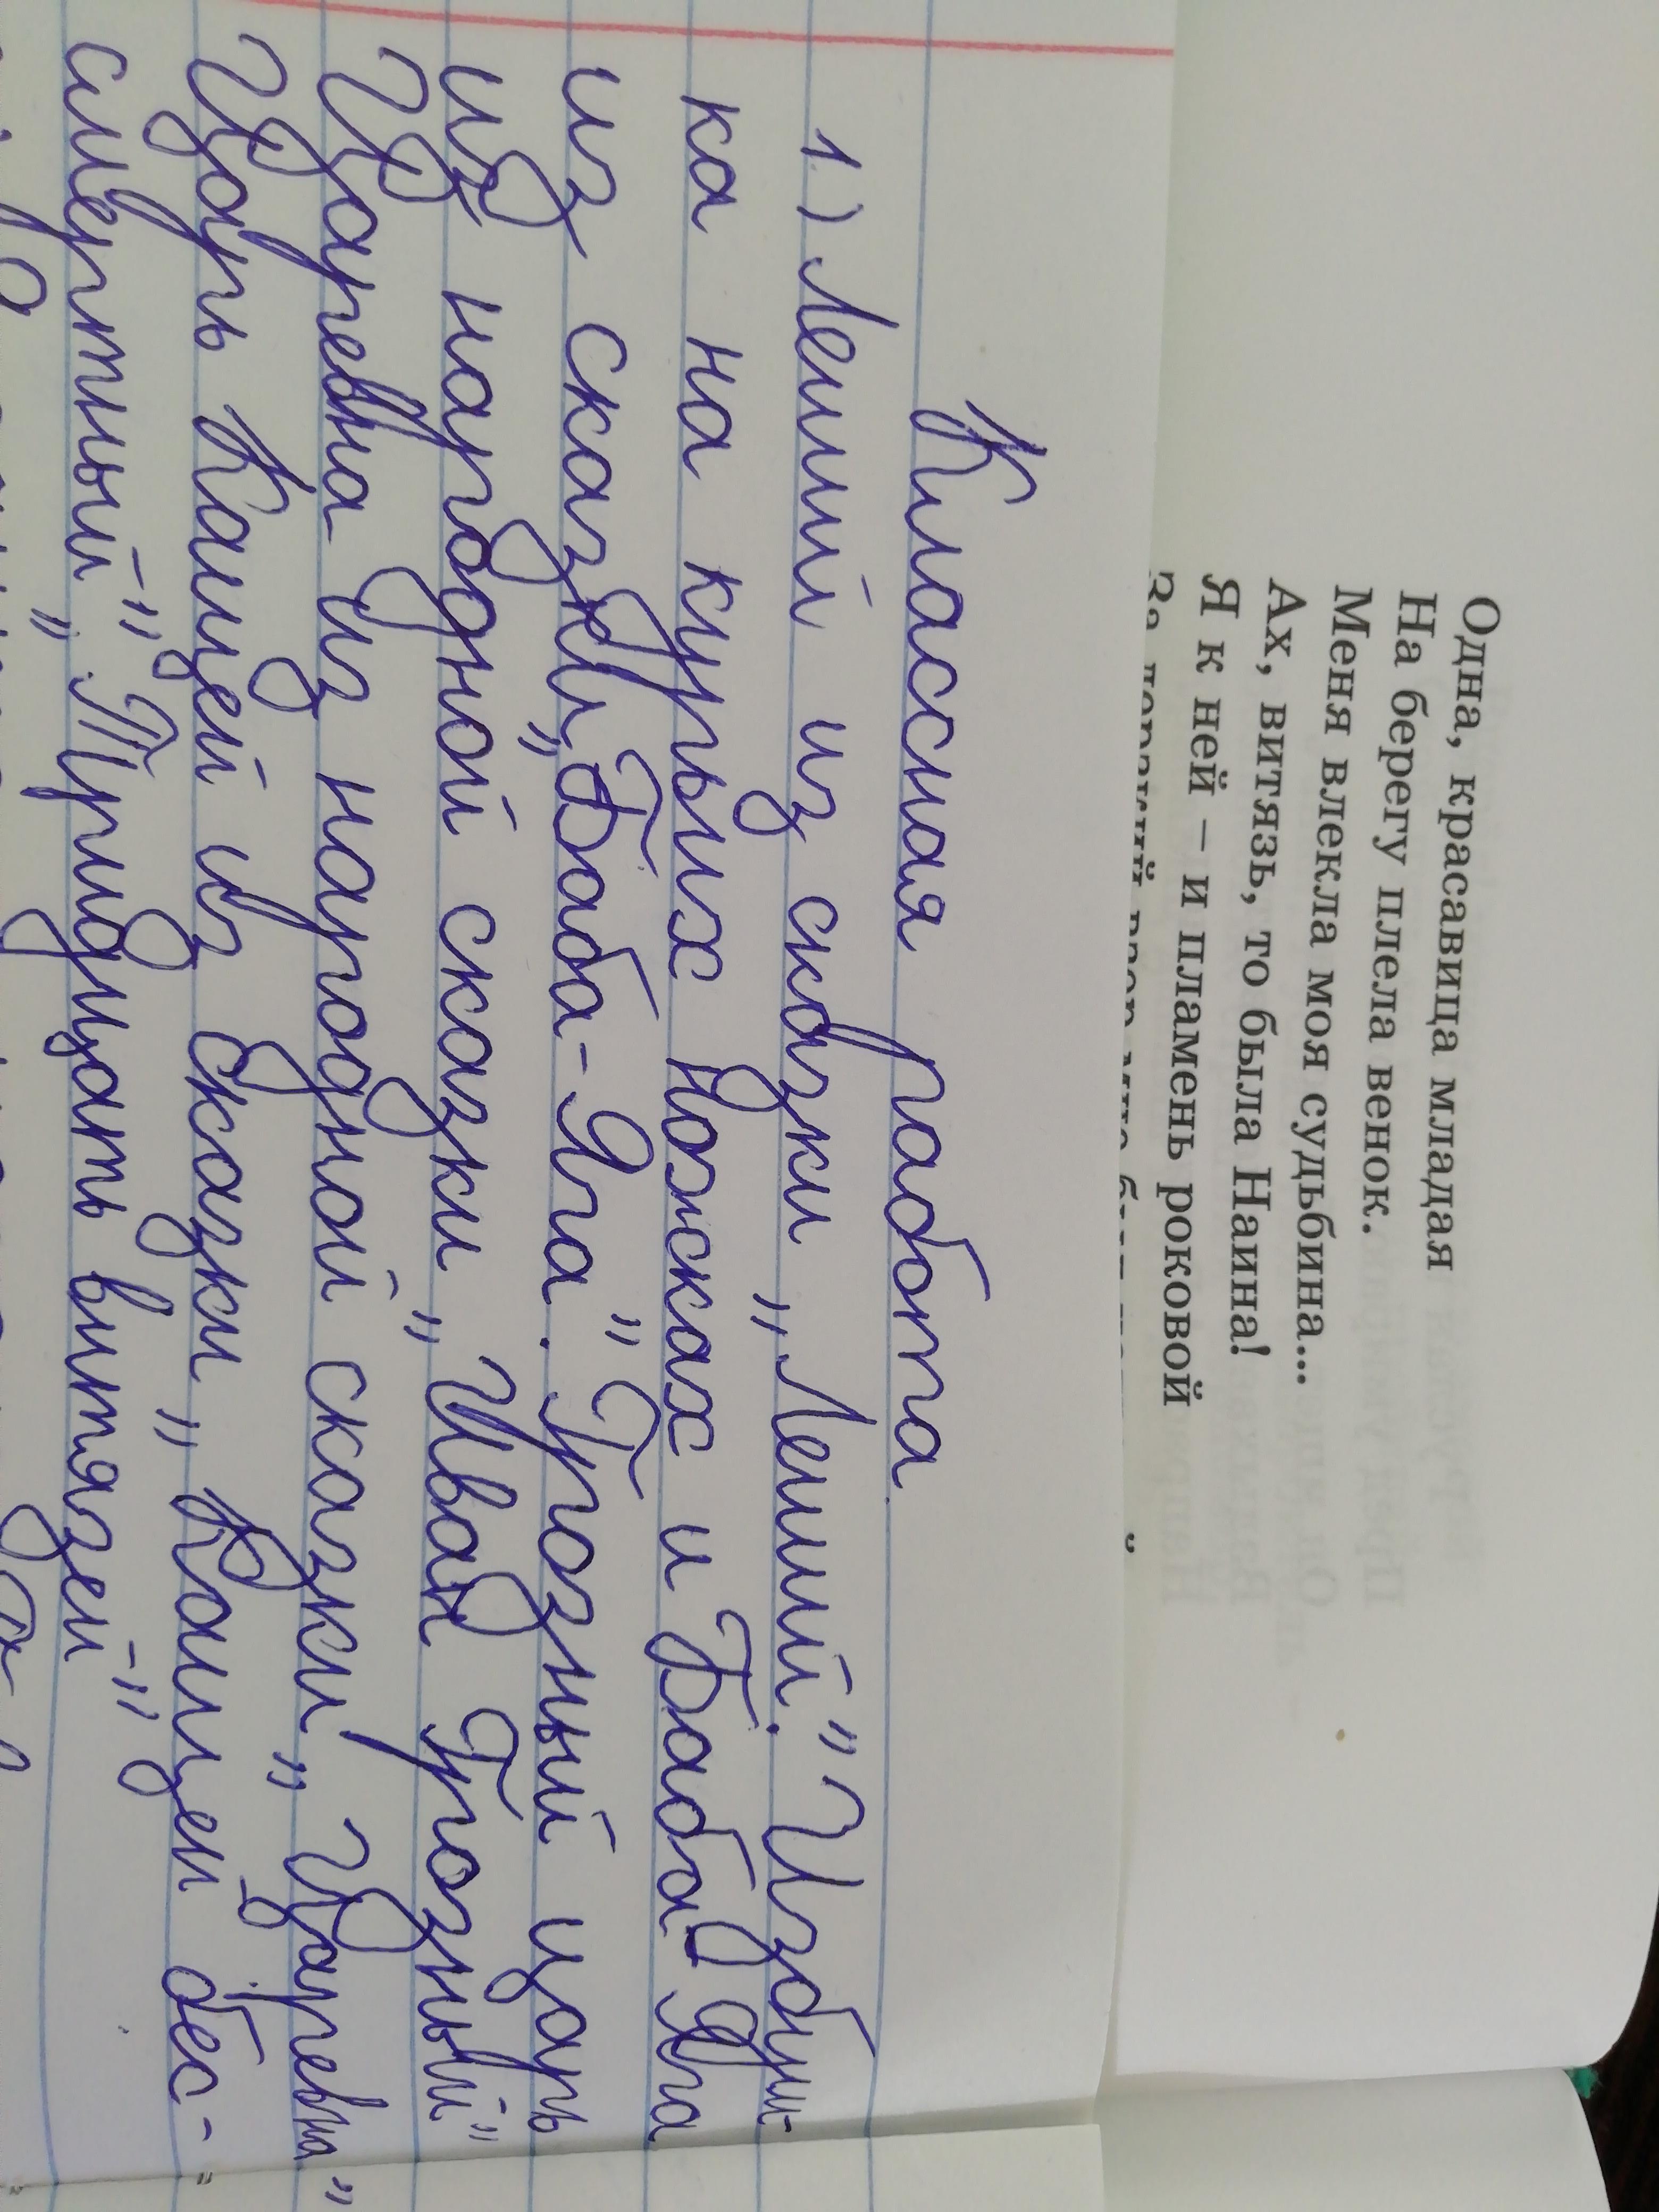 Одна, красавица младая
На берегу плела венок.
Меня влекла моя судьбина...
Ах, витязь, то была Наина!
Я к ней – и пламень роковой
За дерзкий взор мне был
Классная работа.
1.) Леший из сказки „Леший.” Избуш-
ка на курьих ножках и Баба Яга
из сказки „Баба-Яга”. Грозный царь
из народной сказки „Иван Грозный”
Царевна из народной сказки „Царевна”
Царь Кащей из сказки „Кащей бес-
смертный” „Тридцать витязей”